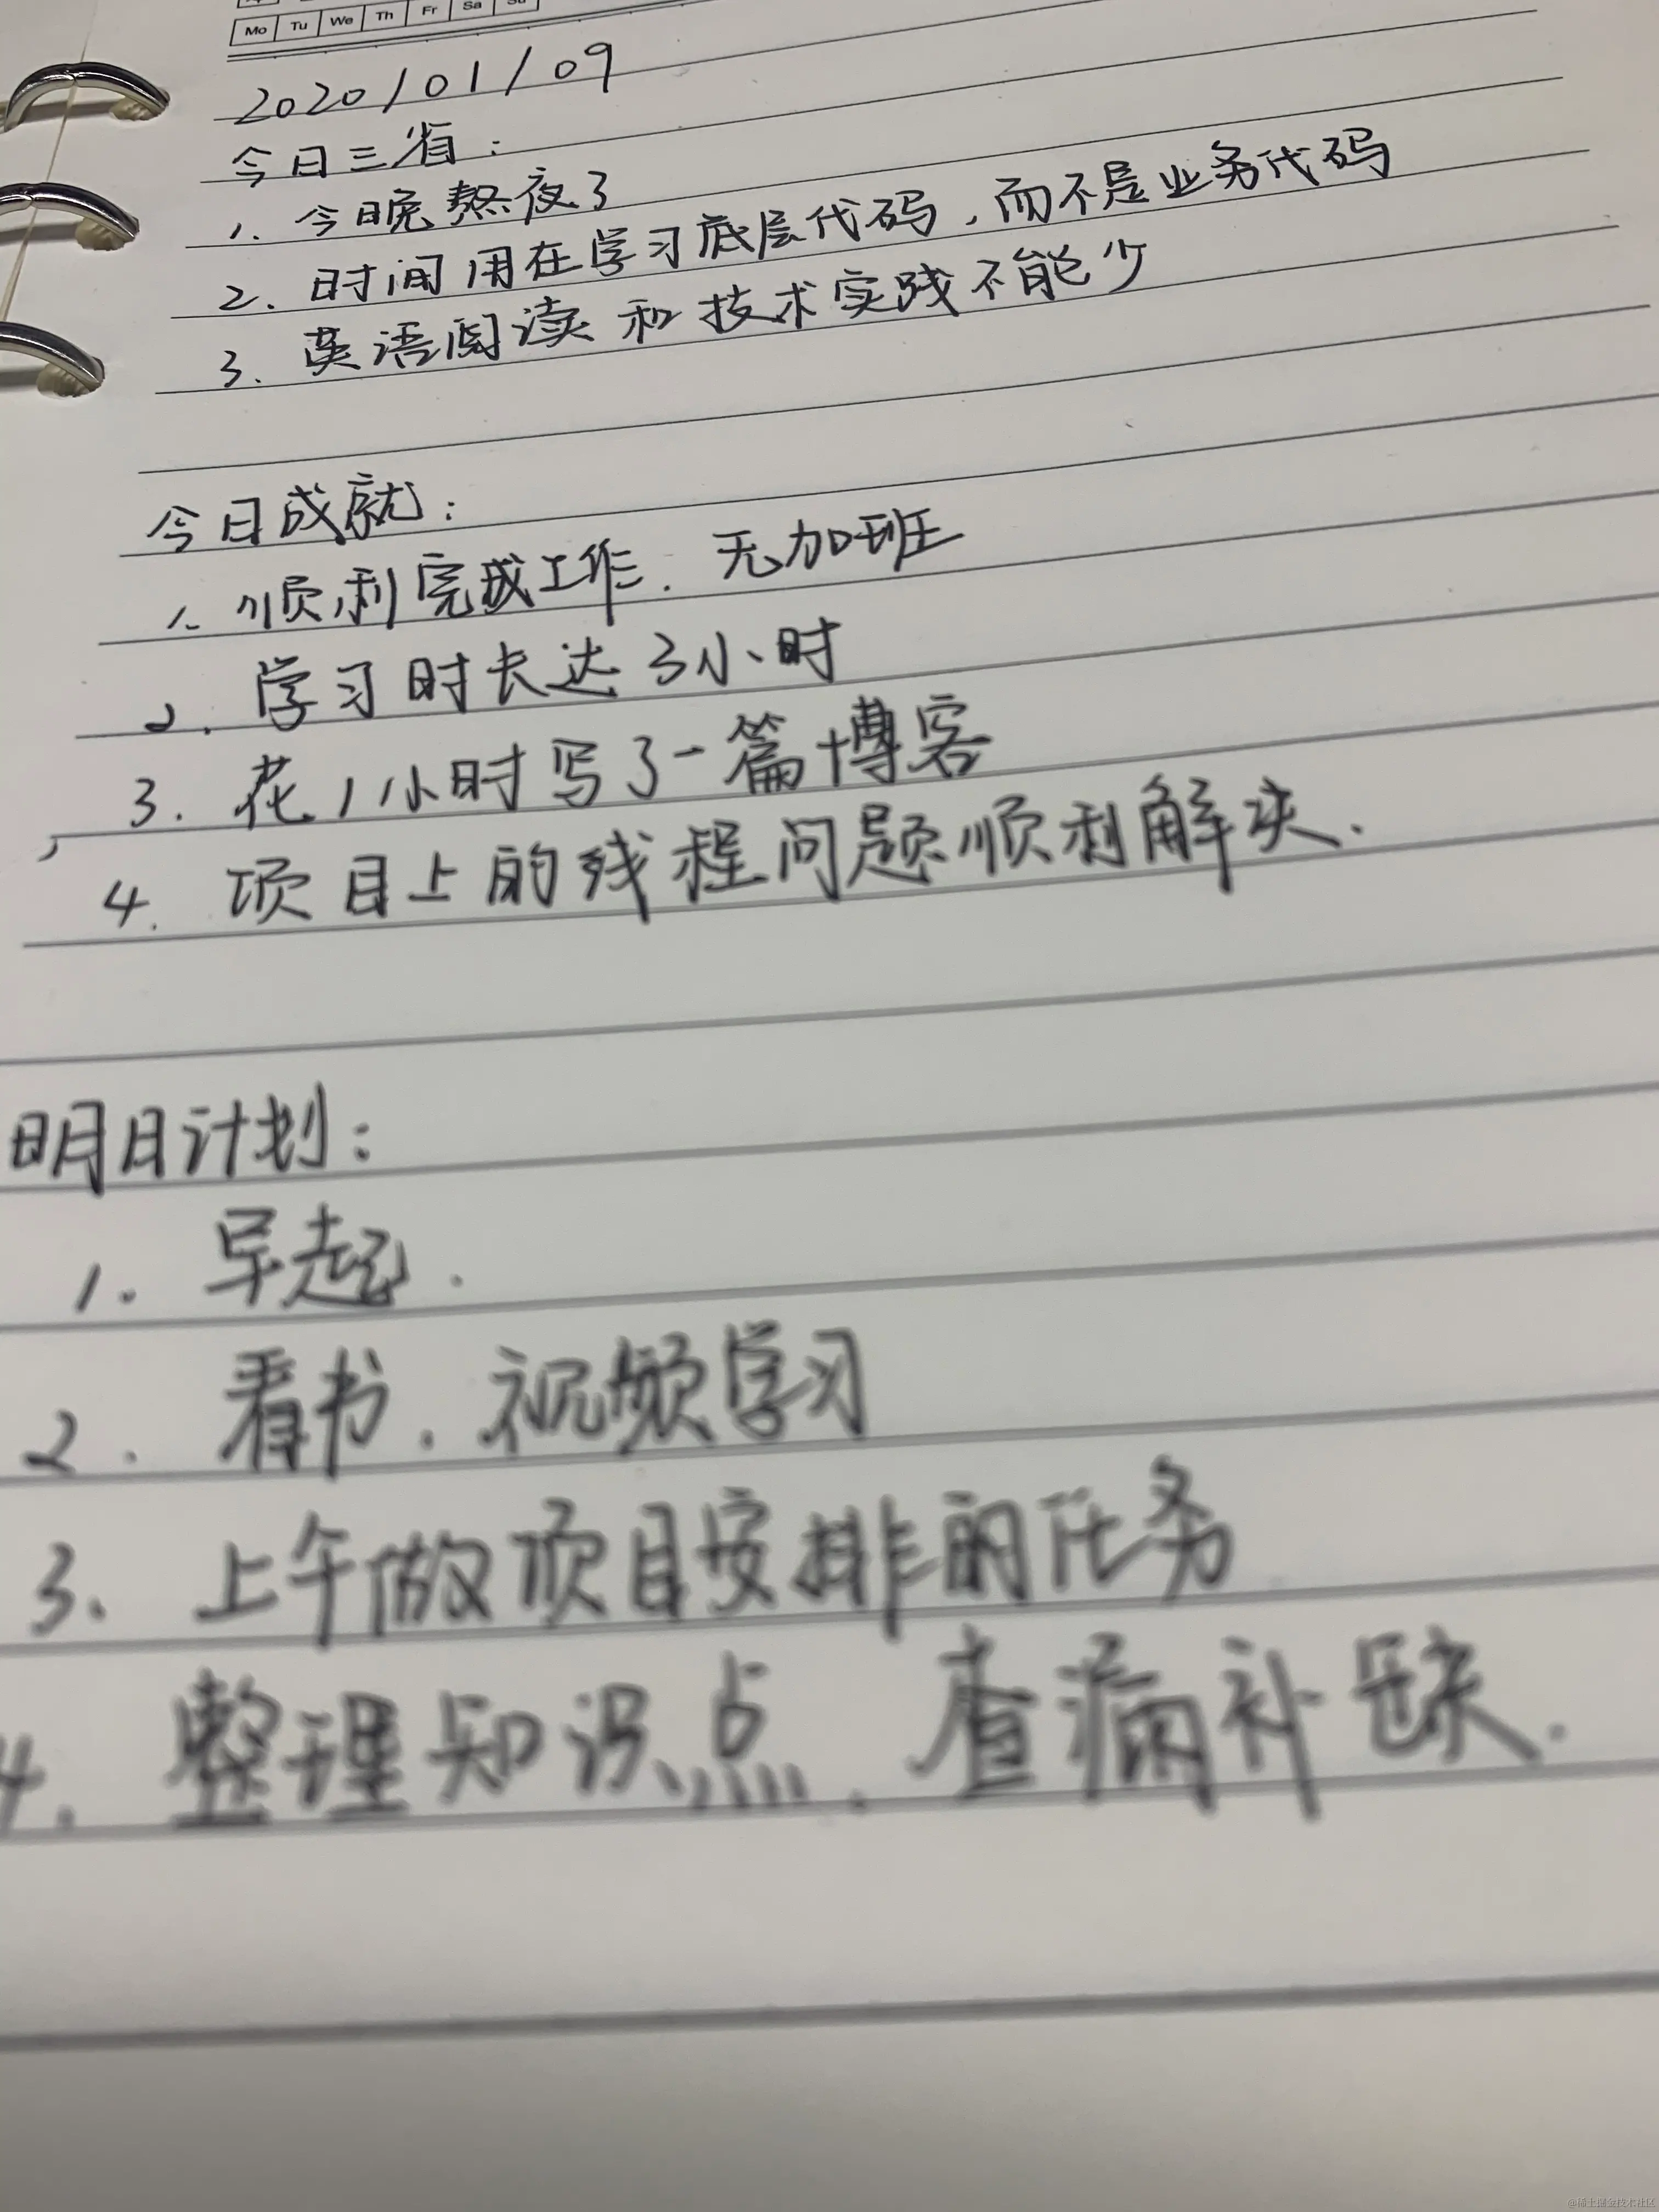 Mo Tu We Th Fr Sa Su
2020/01/09
今日三省：
1. 今晚熬夜了
2. 时间用在学习底层代码，而不是业务代码
3. 英语阅读和技术实践不能少
今日成就：
1. 顺利完成工作，无加班
2. 学习时长达3小时
3. 花1小时写了一篇博客
4. 项目上的线程问题顺利解决.
明日计划：
1. 早起.
2. 看书，视频学习
3. 上午做项目安排的任务
4. 整理知识点，查漏补缺.
@稀土掘金技术社区